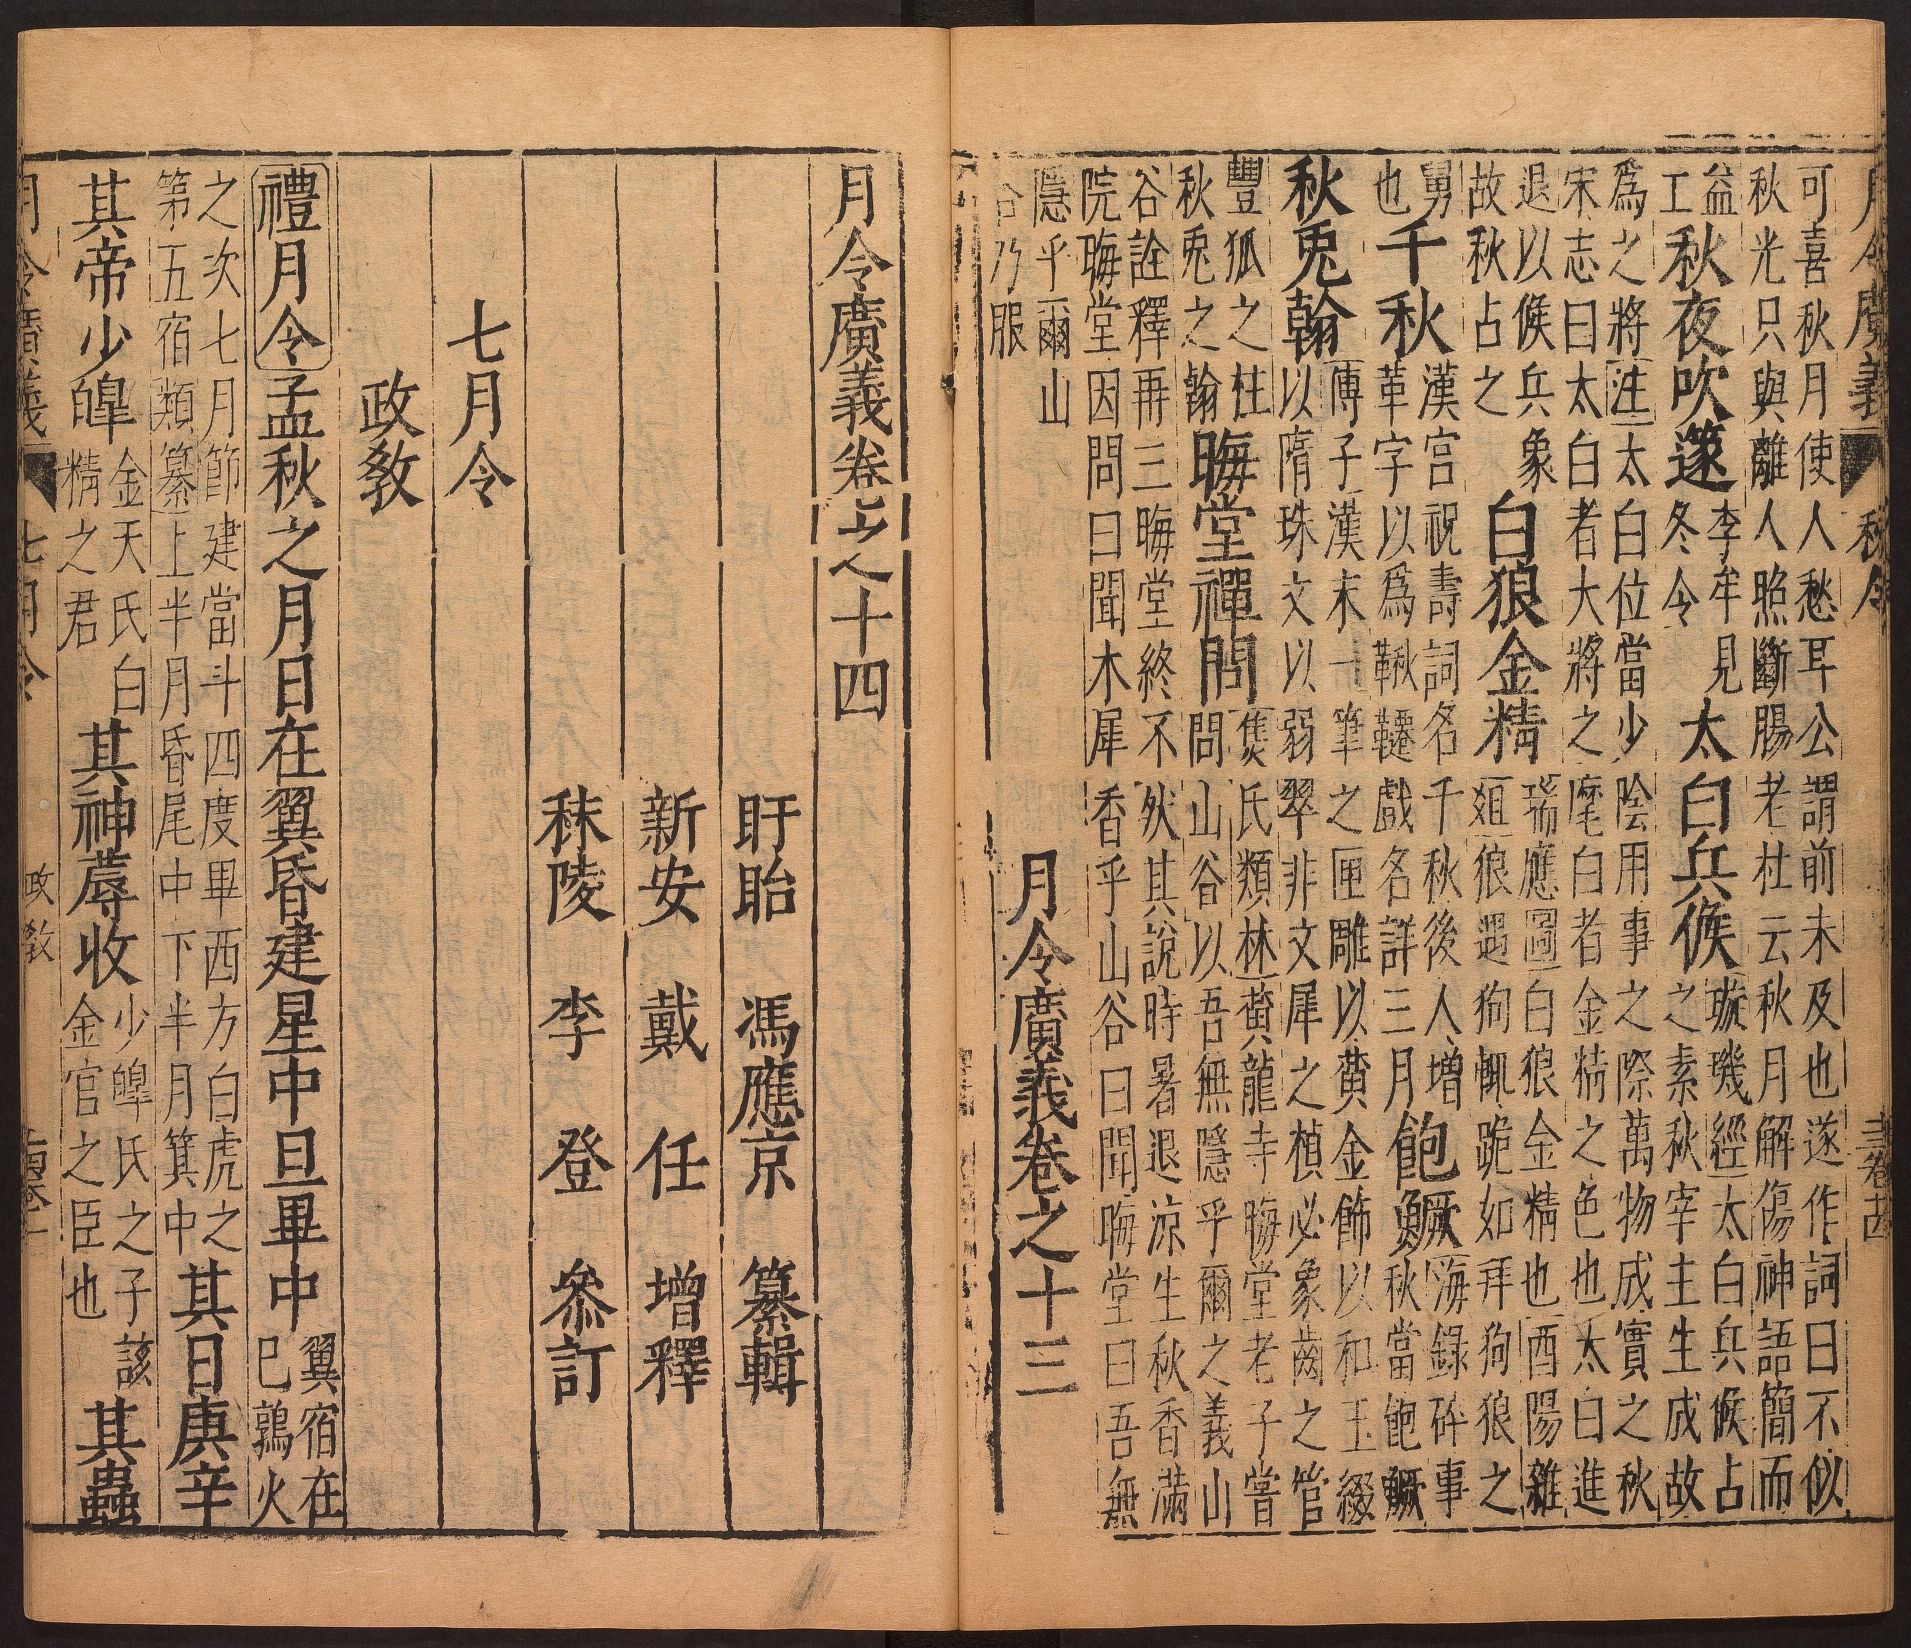 月令廣義 秋令
可喜秋月使人愁耳公謂前未及也遂作詞曰不似
秋光只與離人照斷腸老杜云秋月解傷神語簡而
益工秋夜吹篴李牟見冬令太白兵候璇璣經太白兵候占之素秋宰主生成故
為之將注太白位當少陰用事之際萬物成實之秋
宋志曰太白者大將之麾白者金精之色也太白進
退以候兵象故秋占之白狼金精瑞應圖白狼金精也酉陽雜爼狼遇狗輒跪如拜狗狼之
舅也千秋漢宮祝壽詞名千秋後人增革字以為鞦韆戲名詳三月飽鱖海錄碎事秋當飽鱖
秋兎翰傅子漢末一筆之匣雕以黄金飾以和玉綴以隋珠文以弱翠非文犀之楨必象齒之管
豐狐之柱秋兎之翰晦堂禪問氏類林黄龍寺晦堂老子嘗問山谷以吾無隱乎爾之義山
谷詮釋再三晦堂終不然其說時暑退涼生秋香滿
院晦堂因問曰聞木犀香乎山谷曰聞晦堂曰吾無
隱乎爾山谷乃服
月令廣義卷之十三
月令廣義卷之十四
盱眙 馮應京 纂輯
新安 戴任 增釋
秣陵 李登 叅訂
七月令
政敎
禮月令孟秋之月日在翼昏建星中旦畢中翼宿在巳鶉火
之次七月節建當斗四度畢西方白虎之第五宿類纂上半月昏尾中下半月箕中其日庚辛
其帝少皥金天氏白精之君其神蓐收少皥氏之子該金官之臣也其蟲
月令廣義 七月令 政敎